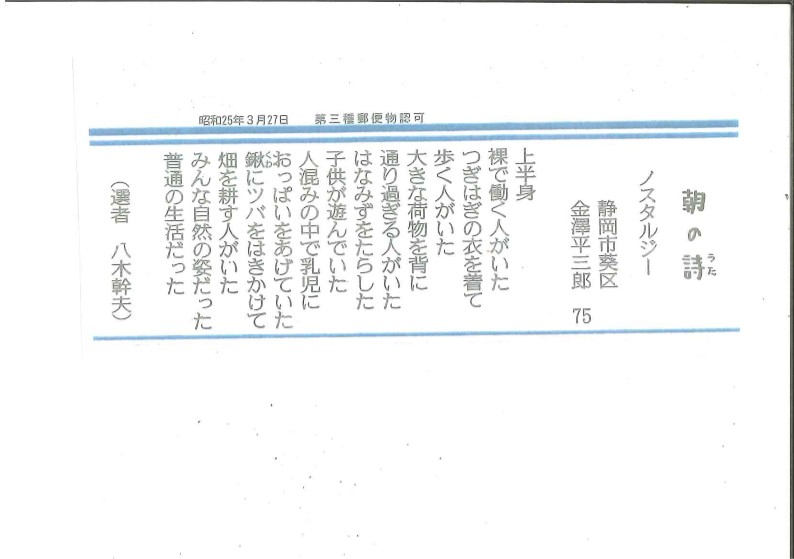 昭和25年3月27日 第三種郵便物認可
朝の詩
うた
ノスタルジー
静岡市葵区
金澤平三郎 75
上半身
裸で働く人がいた
つぎはぎの衣を着て
歩く人がいた
大きな荷物を背に
通り過ぎる人がいた
はなみずをたらした
子供が遊んでいた
人混みの中で乳児に
おっぱいをあげていた
鍬にツバをはきかけて
くわ
畑を耕す人がいた
みんな自然の姿だった
普通の生活だった
(選者 八木幹夫)